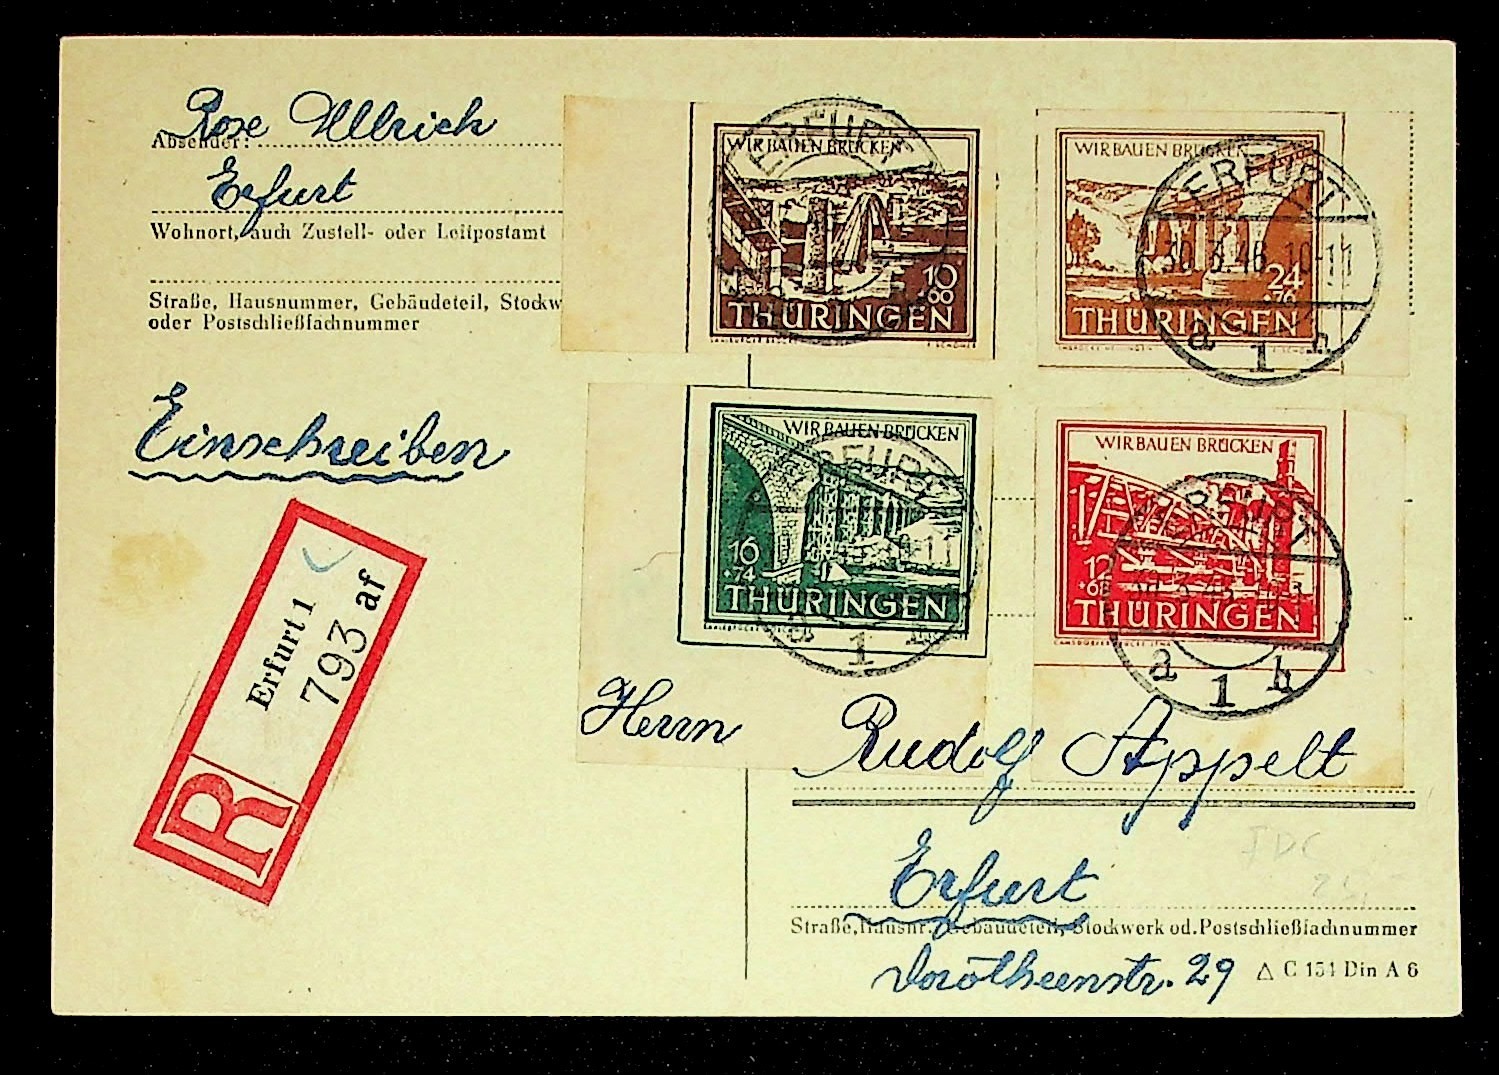 Rose Ullrich
Absender:
Erfurt
Wohnort, auch Zustell- oder Leitpostamt
Straße, Hausnummer, Gebäudeteil, Stockw
oder Postschließfachnummer
Einschreiben
Erfurt 1
793 af
R
WIR BAUEN BRÜCKEN
10
+60
THÜRINGEN
ERFURT
WIR BAUEN BRÜCKEN
24
+76
THÜRINGEN
ERFURT
30.3.46.10-11
a 1 h
WIR BAUEN BRÜCKEN
16
+74
THÜRINGEN
ERFURT
1
WIR BAUEN BRÜCKEN
12
+68
THÜRINGEN
ERFURT
a 1 h
Herrn Rudolf Appelt
Erfurt
Straße, Hausnr., Gebäudeteil, Stockwerk od. Postschließfachnummer
Dorotheenstr. 29
△ C 154 Din A 6